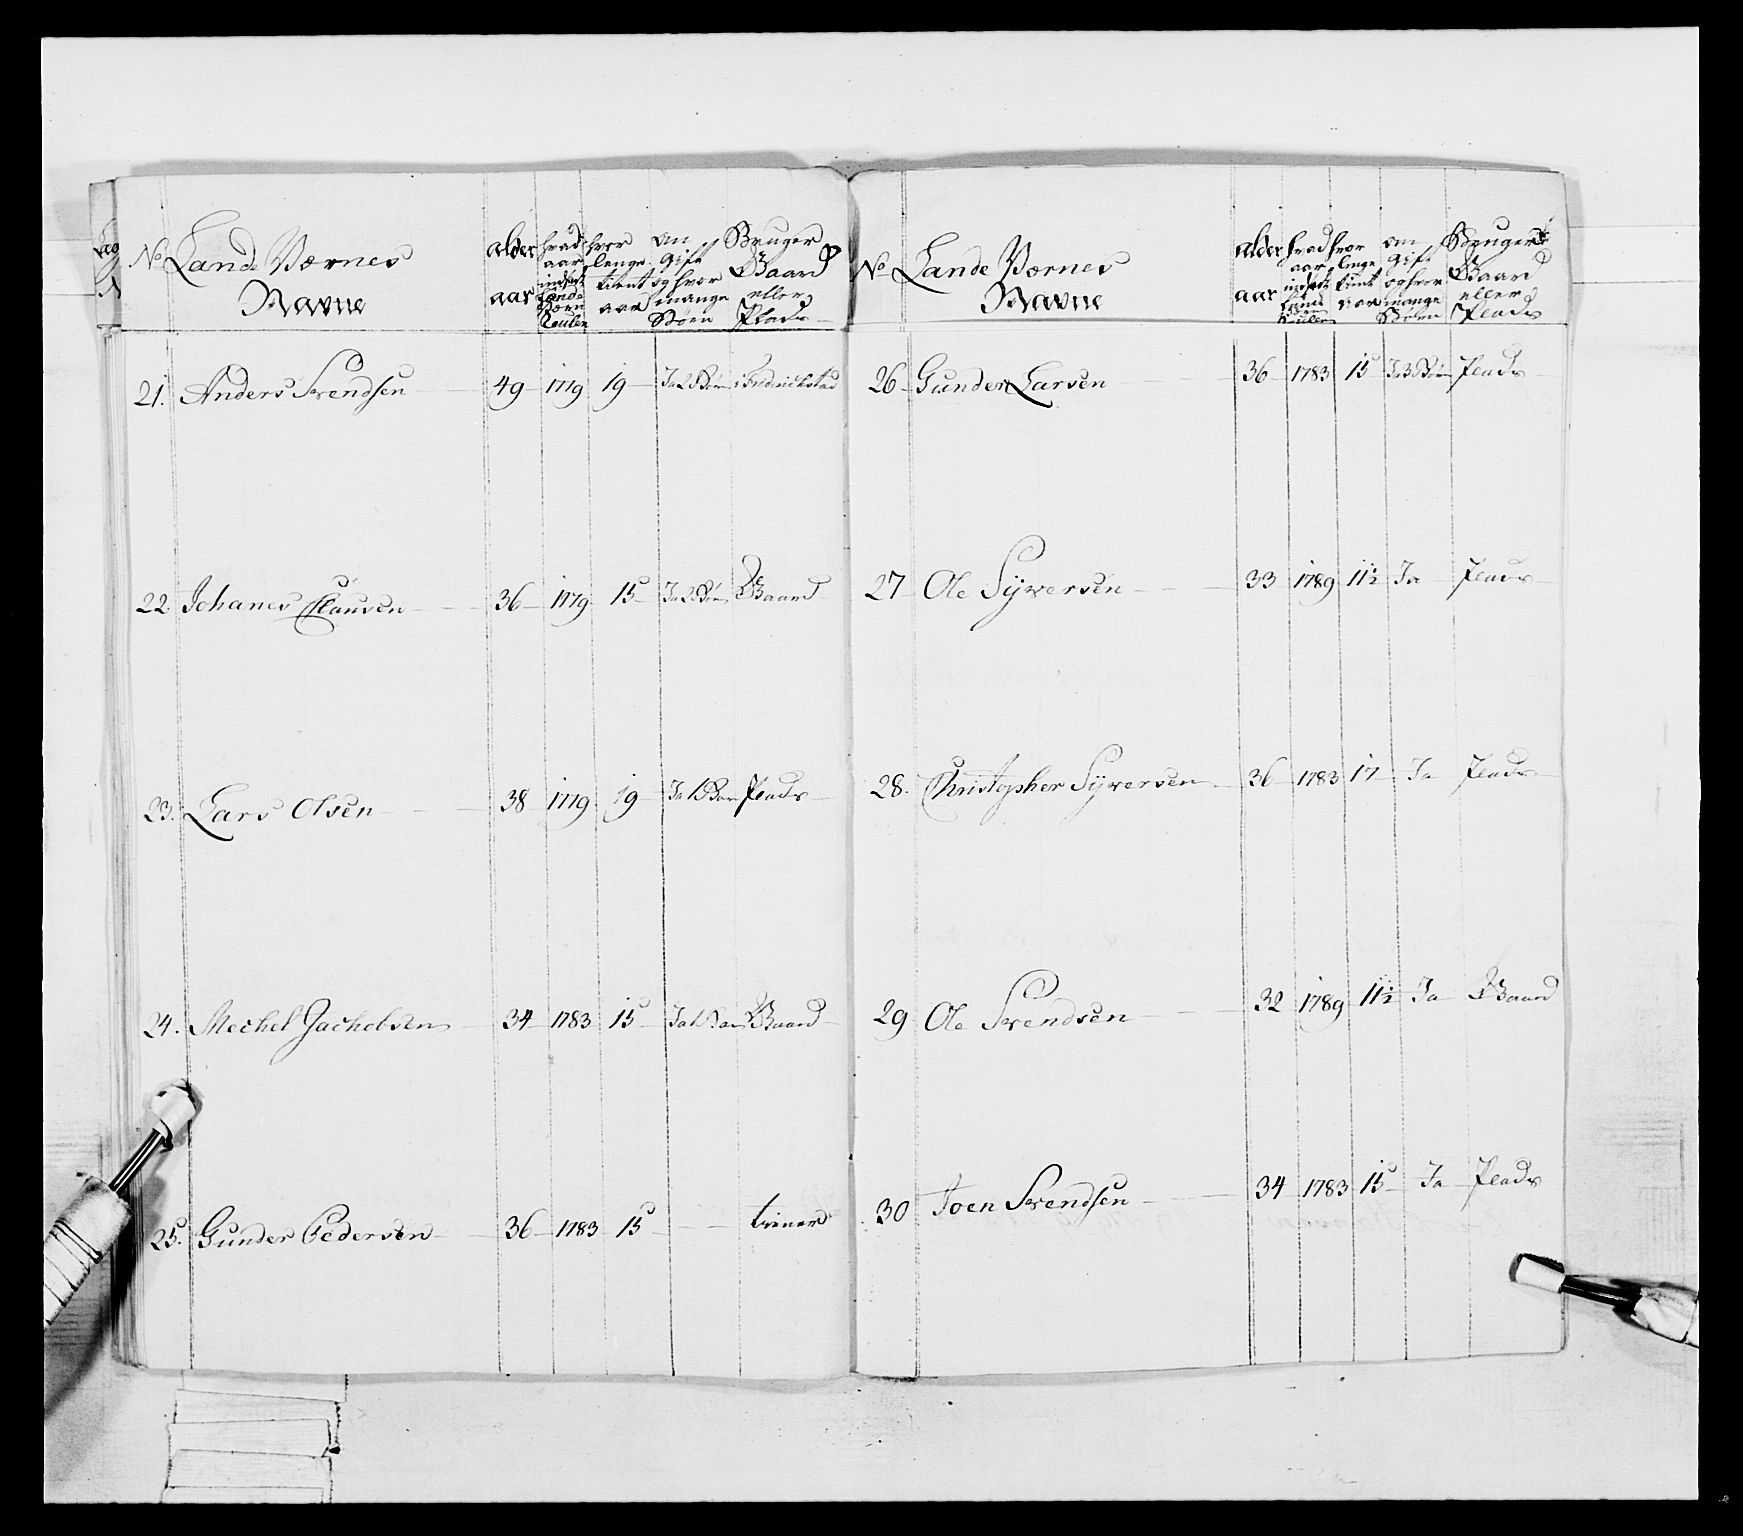 No Lande Værnes Navne | alder aar | hvad aar indsat Lande Værn Rullen | hvor lenge tient aar | om Gift og hvor mange Børn | Bruger Gaard eller Plads
21. Anders Svendsen 49 1779 19 Ja 2 Børn Fredrichstad
22 Johanes Clausen 36 1779 15 Ja 2 Børn Gaard
23. Lars Olsen 38 1779 19 Ja 1 Barn Plads
24. Mechel Jachobsen 34 1783 15 Ja 1 Barn Gaard
25. Gunder Pedersen 36 1783 15 tiener
No Lande Værnes Navne | alder aar | hvad aar indsatt Land Rullen | hvor lenge tient aar | om Gift og hvor mange Børn | Bruger Gaard eller Plads
26 Gunder Larsen 36 1783 15 Ja 3 Børn Plads
27 Ole Syversen 33 1789 11½ Ja Plads
28. Christopher Syversen 36 1783 17 Ja Plads
29 Ole Svendsen 32 1789 11½ Ja Gaard
30 Joen Svendsen 34 1783 15 Ja Plads